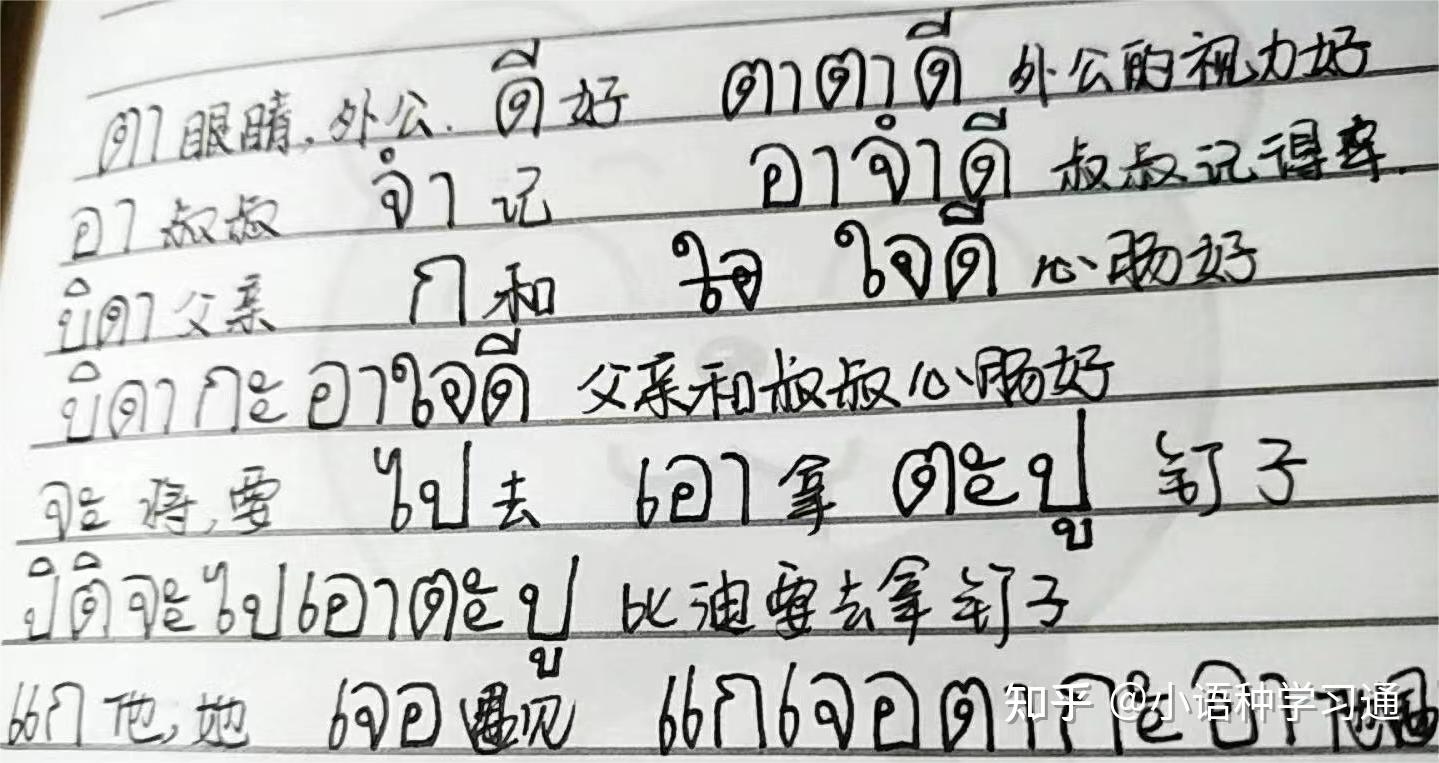 ตา 眼睛,外公. ดี 好 ตาตาดี 外公的视力好
อา 叔叔 จำ 记 อาจำดี 叔叔记得牢.
บิดา 父亲 ก 和 ใจ ใจดี 心肠好
บิดา กะ อาใจดี 父亲和叔叔心肠好
จะ 将,要 ไป 去 เอา 拿 ตะปู 钉子
ปิติจะไปเอาตะปู 比迪要去拿钉子
แก 他,她 เจอ 遇见 แกเจอตากะอา 他遇
知乎 @小语种学习通